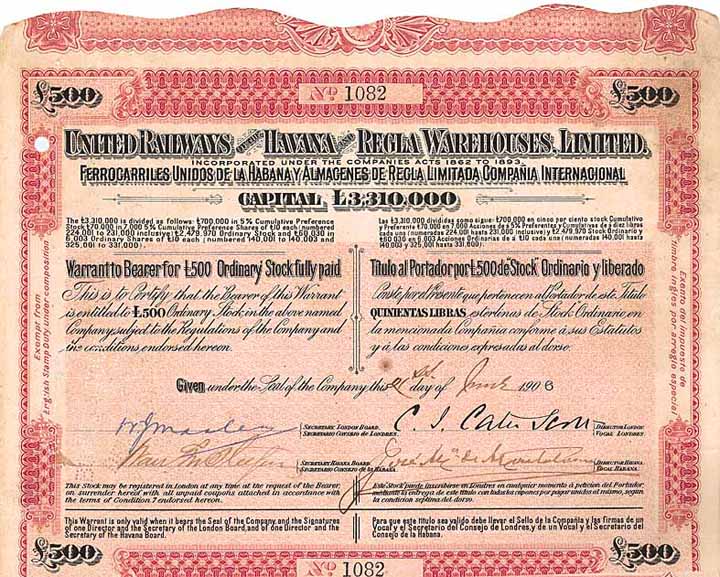 £500 No. 1082 £500
UNITED RAILWAYS OF THE HAVANA AND REGLA WAREHOUSES, LIMITED.
INCORPORATED UNDER THE COMPANIES ACTS 1862 TO 1893.
FERROCARRILES UNIDOS DE LA HABANA Y ALMACENES DE REGLA LIMITADA COMPAÑIA INTERNACIONAL
CAPITAL £3,310,000
The £3,310,000 is divided as follows: £700,000 in 5% Cumulative Preference
Stock £70,000 in 7,000 5% Cumulative Preference Shares of £10 each (numbered
224,001 to 231,000 inclusive) £2,479,970 Ordinary Stock and £60,030 in
6,003 Ordinary Shares of £10 each (numbered 140,001 to 140,003 and
325,001 to 331,000).
Las £3,310,000 dividido como sigue: £700,000 en cinco por ciento stock Cumulativo
y Preferente £70,000 en 7,000 Acciones de a 5% Preferentes y Cumulativos de a diez libras
cada una (numeradas 224,001 hasta 231,000 inclusive) £2,479,970 Stock Ordinario y
£60,030 en 6,003 Acciones Ordinarias de a £10 cada una (numeradas 140,001 hasta
140,003 y 325,001 hasta 331,000).
Warrant to Bearer for £500 Ordinary Stock fully paid
This is to Certify that the Bearer of this Warrant
is entitled to £500 Ordinary Stock in the above named
Company, subject to the Regulations of the Company and
the conditions endorsed hereon.
Titulo al Portador por £500 de Stock Ordinario y liberado
Conste por el Presente que pertenecen al Portador de este Titulo
QUINIENTAS LIBRAS esterlinas de Stock Ordinario en
la mencionada Compañia conforme á sus Estatutos
y á las condiciones expresadas al dorso.
Given under the Seal of the Company this day of June 1906
SECRETARY LONDON BOARD.
SECRETARIO CONSEJO DE LONDRES.
DIRECTOR LONDON
VOCAL LONDRES.
SECRETARY HAVANA BOARD.
SECRETARIO CONSEJO DE LA HABANA
DIRECTOR HAVANA
VOCAL HABANA.
This Stock may be registered in London at any time at the request of the Bearer,
on surrender hereof with all unpaid coupons attached in accordance with
the terms of Condition 7 endorsed hereon.
Este Stock puede inscribirse en Londres en cualquier momento á petición del Portador,
mediante la entrega de este título con todos los cupones por pagar unidos al mismo, según
la condición séptima del dorso.
This Warrant is only valid when it bears the Seal of the Company, and the Signatures
of one Director and the Secretary of the London Board, and of one Director and the
Secretary of the Havana Board.
Para que este titulo sea valido debe llevar el Sello de la Compañia y las firmas de un
Vocal y el Secretario del Consejo de Londres, y de un Vocal y el Secretario del
Consejo de la Habana.
Exempt from
English Stamp Duty under composition
Exento del impuesto de
timbre ingles por arreglo especial
£500 No. 1082 £500